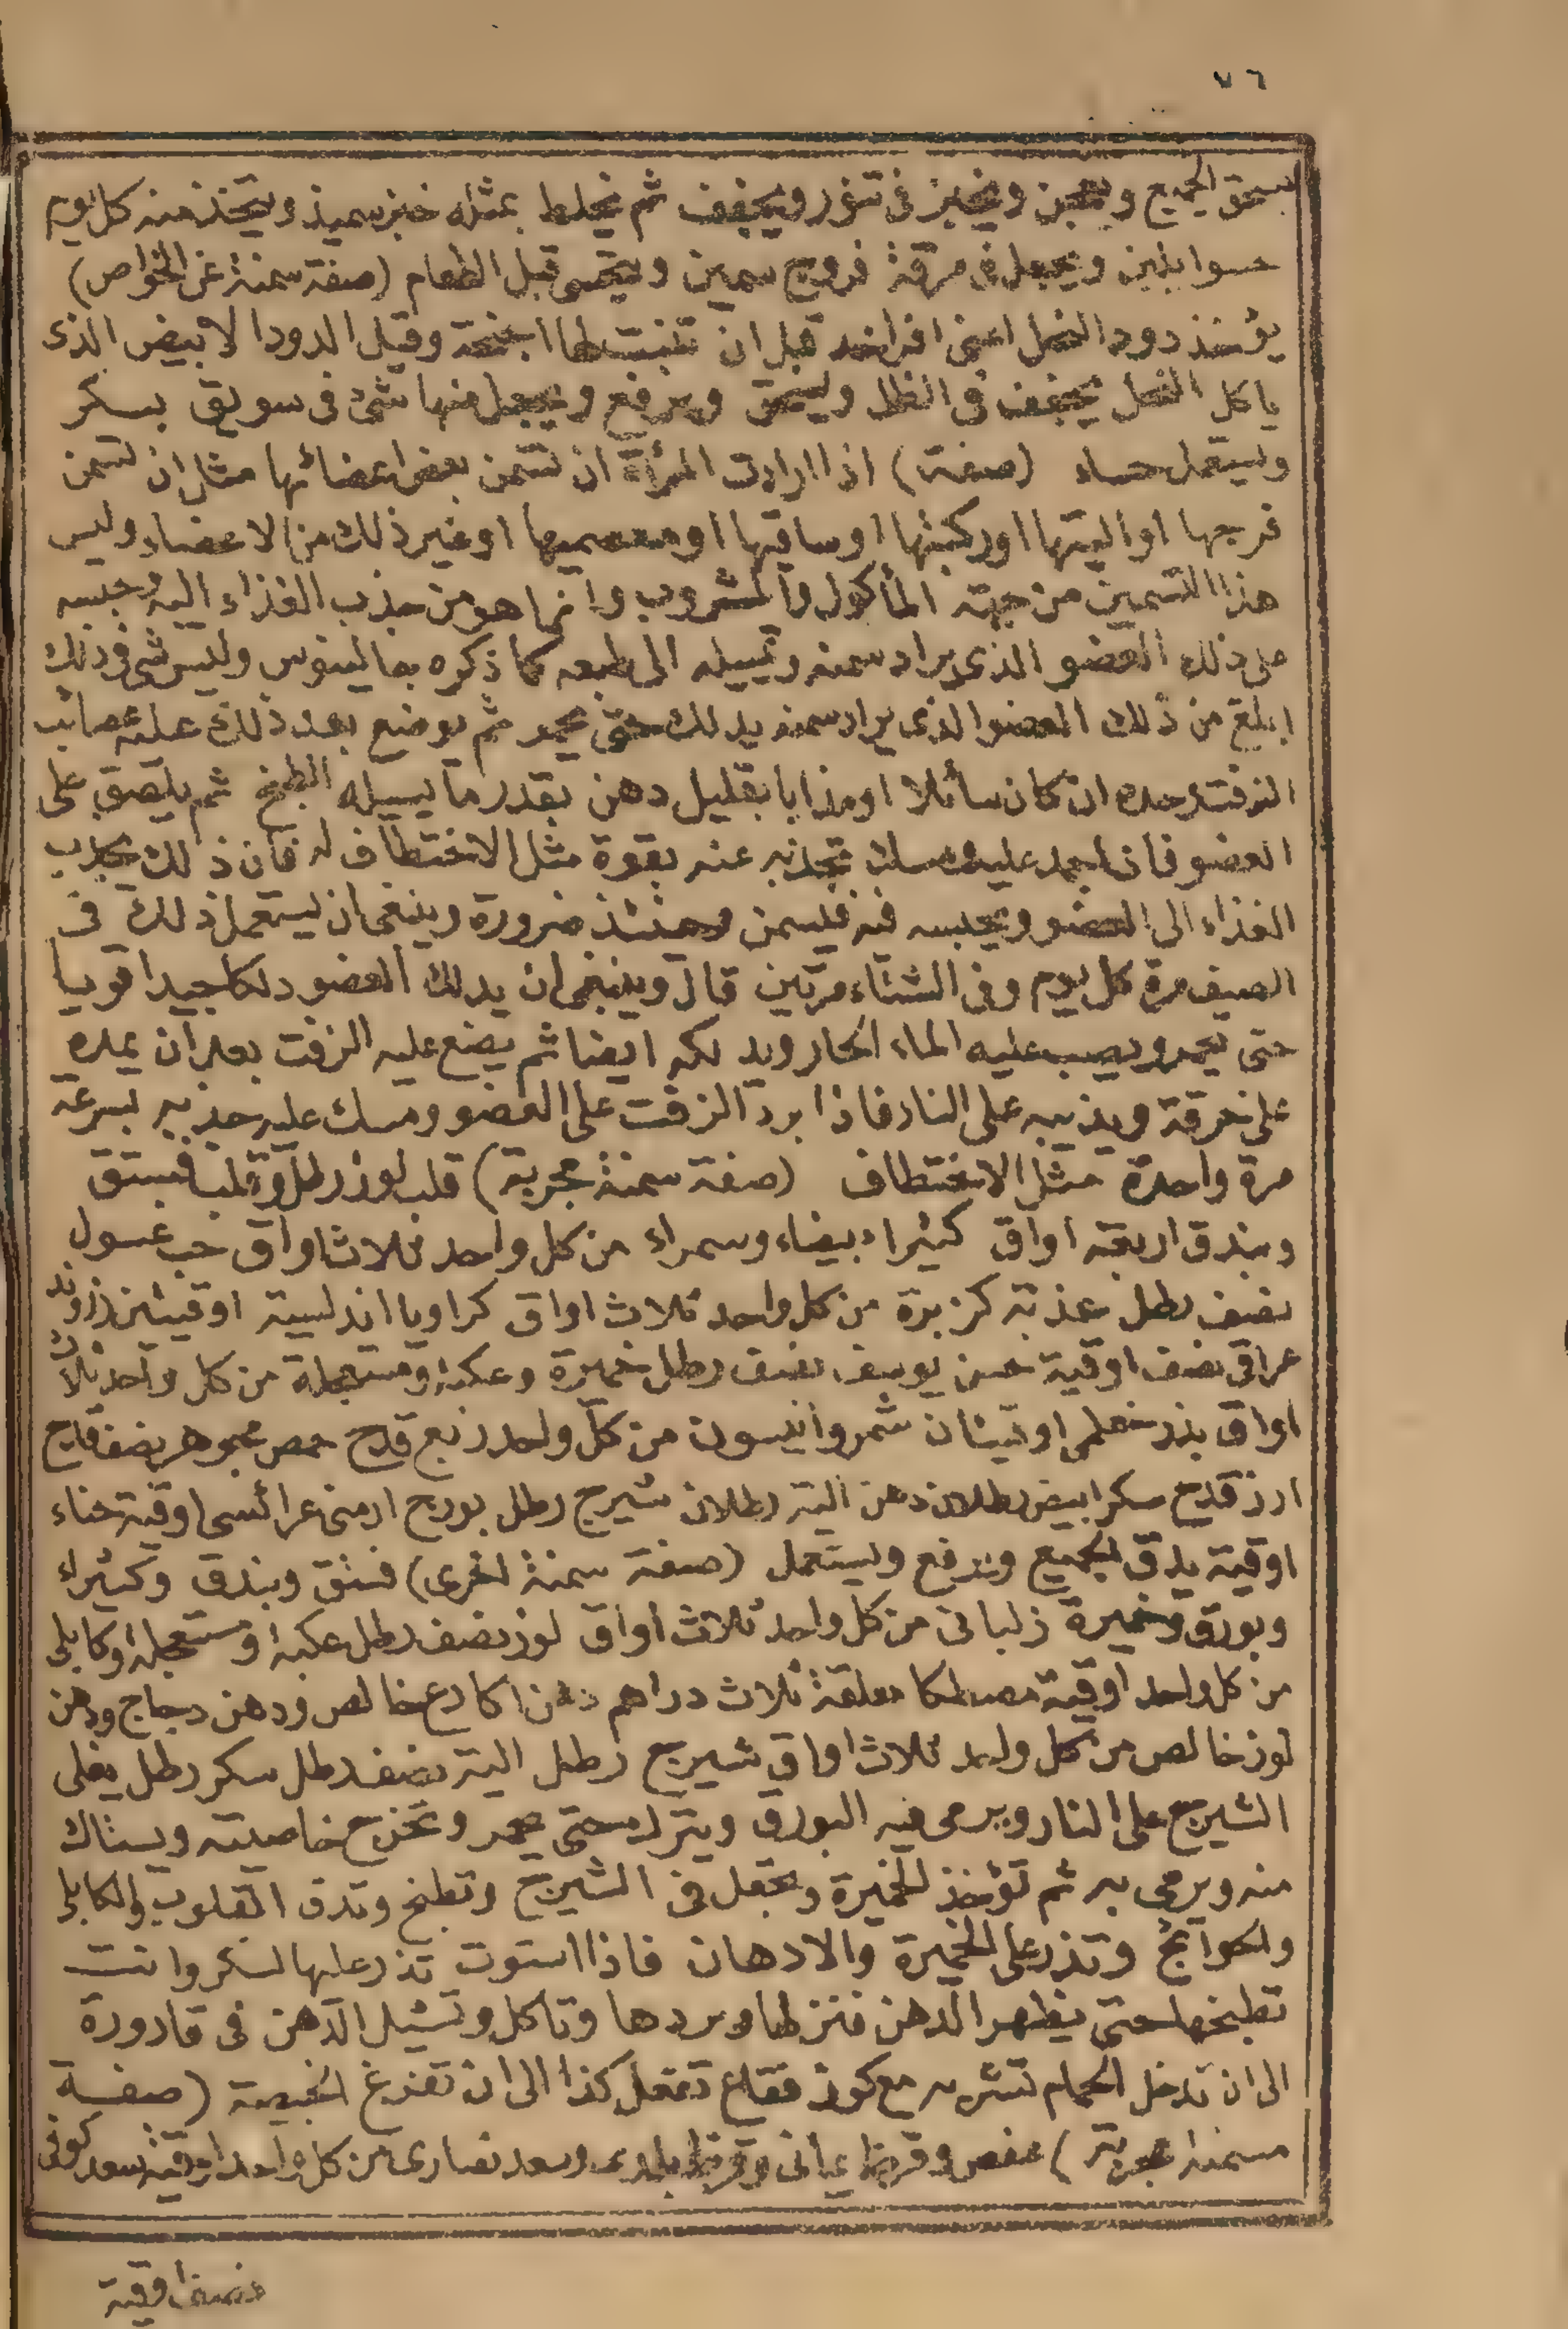 ٧٦
يسحق الجميع ويعجن ويخبز فى تنور ويجفف ثم يخلط بمثله خبز سميذ ويتخذ منه كل يوم
حسوا بلبن ويجعل فى مرقة فروج سمين ويتحسى قبل الطعام (صفة سمنة عن الخواص)
يؤخذ دود النحل اعنى افراخه قبل ان تنبت لها اجنحة وقيل الدود الابيض الذى
ياكل النحل يجفف فى الظل ويسحق ويرفع ويجعل منها شئ فى سويق بسكر
ويستعمل حساء (صفة) اذا ارادت المرأة ان تسمن بعض اعضائها مثل ان تسمن
فرجها او اليتها او ركبتها او ساقيها او معصميها او غير ذلك من الاعضاء وليس
هذا التسمين من جهة المأكول والمشروب وانما هو من جذب الغذاء اليه وحبسه
على ذلك العضو الذى يراد سمنه وتمييله الى طبعه كما ذكره جالينوس وليس شى فى ذلك
ابلغ من ذلك العضو الذى يراد سمنه يدلك حتى يحمر ثم يوضع بعد ذلك عليه عصائب
الزفت وحده ان كان سائلا او مذابا بقليل دهن بقدر ما يسيله الطبخ ثم يلصق على
العضو فاذا جمد عليه ومسك تجذبه عنه بقوة مثل الاختطاف له فان ذلك يجذب
الغذاء الى العضو ويحبسه فيه فيسمن وحينئذ ضرورة وينبغى ان يستعمل ذلك فى
الصيف مرة كل يوم وفى الشتاء مرتين قال وينبغى ان يدلك العضو دلكا جيدا قويا
حتى يحمر ويصب عليه الماء الحار ويدلكه ايضا ثم يضع عليه الزفت بعد ان يمده
على خرقة ويذيبه على النار فاذا برد الزفت على العضو ومسك عليه جذبه بسرعة
مرة واحدة مثل الاختطاف (صفة سمنة مجربة) قلب لوز رطل وقلب فستق
وبندق اربعة اواق كثيراء بيضاء وسمراء من كل واحد ثلاث اواق حب غسول
نصف رطل عذبة كزبرة من كل واحد ثلاث اواق كراويا اندلسية اوقيتين زراوند
عراقى نصف اوقية حسن يوسف نصف رطل خميرة وعكنة ومستعجلة من كل واحد ثلاث
اواق بزر خطمى اوقيتان شمر وانيسون من كل واحد ربع قدح حمص مجوهر نصف قدح
ارز قدح سكر ابيض رطلان دهن الية رطلان شيرج رطل بورج ارمنى عرائسى اوقية حناء
اوقية يدق الجميع ويرفع ويستعمل (صفة سمنة اخرى) فستق وبندق وكثيراء
وبورق وخميرة زلبانى من كل واحد ثلاث اواق لوز نصف رطل عكنة ومستعجلة وكابلى
من كل واحد اوقية مصطكا معلقة ثلاث دراهم دهن اكارع خالص ودهن دجاج ودهن
لوز خالص من كل واحد ثلاث اواق شيرج رطل الية نصف رطل سكر رطل يغلى
الشيرج على النار ويرمى فيه البورق ويترك حتى يحمر وتخرج خاصيته ويستاك
منه ويرمى به ثم تؤخذ الخميرة وتجعل فى الشيرج وتطبخ وتدق القلوب والكابلى
والحوائج وتذر على الخميرة والادهان فاذا استوت تذر عليها السكر وانت
تطبخها حتى يظهر الدهن فنزلها وبردها وتاكل وتشيل الدهن فى قارورة
الى ان تدخل الحمام تشربه مع كوز فقاع تفعل كذا الى ان تفرغ الخبيصة (صفة
مسمنة مجربة) عفص وقرظ يمانى وقرظ بلدى وسعد نصارى من كل واحد اوقية سعد كوفى
نصف اوقية